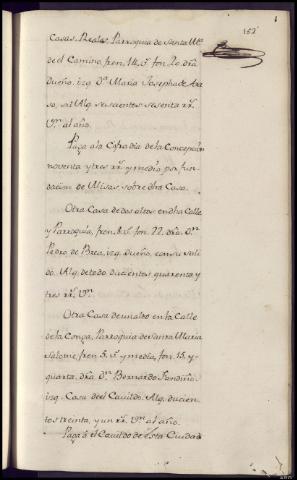 152
Casas Reales, Parroquia de Santa Mª
de el Camino, fren. 14. vˢ. fon. 20. dra.
Dueño, izq. Dª Maria Josepha de
so, su Alq. seiscientos sesenta rrˢ.
Vⁿ. al año.
Paga a la Cofradia de la Concepcion
noventa y tres rrˢ. y medio por fun-
dacion de Misas sobre dha Casa.
Otra Casa de dos altos en dha Calle
y Parroquia, fren. 8. vˢ. fon. 22. dra. Dⁿ.
Pedro de Brea, izq. dueño, con su sali
do. Alq. de todo ducientos, quarenta y
tres rrˢ. Vⁿ.
Otra Casa de un alto en la Calle
de la Conga, Parroquia de Santa Maria
Salome, fren. 5. vˢ. y media, fon. 15. y-
quarta. dra. Dⁿ. Bernardo
izq. Casa de el Cavildo. Alq. ducien-
tos treinta, y un rrˢ. Vⁿ. al año.
Paga á el Cavildo de esta Ciudad